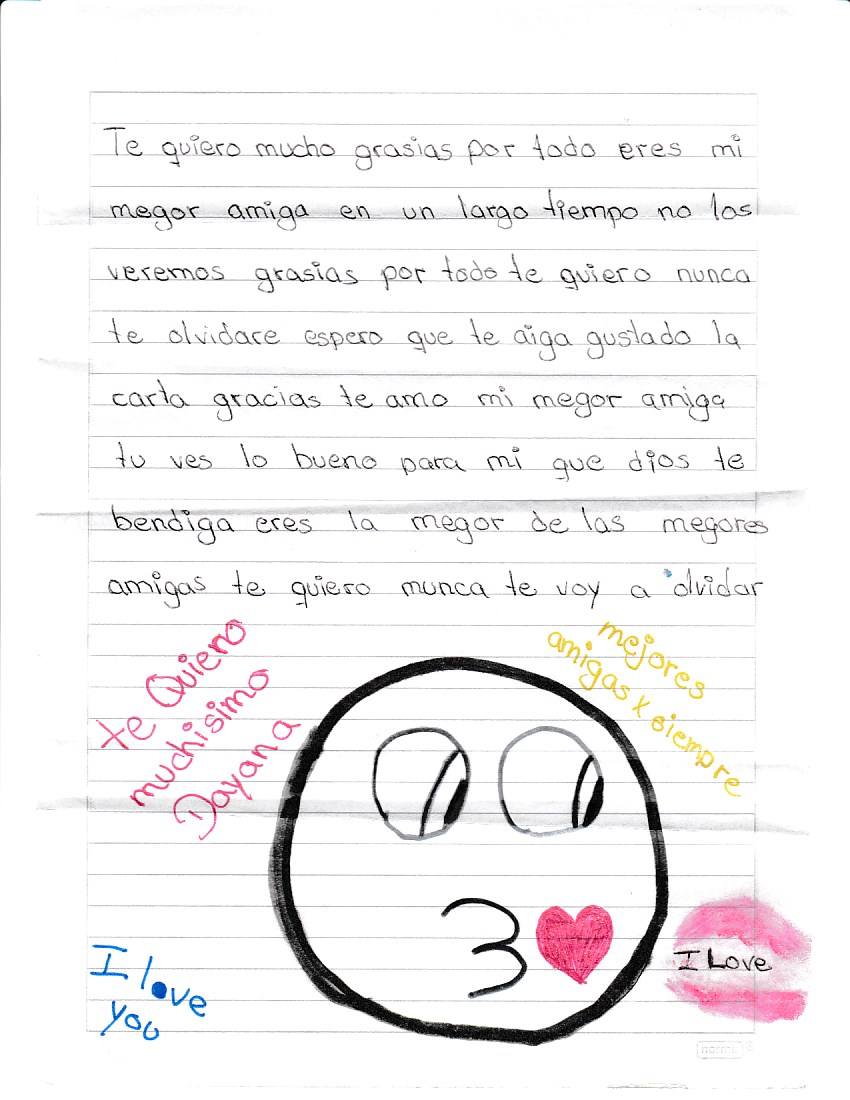 Te quiero mucho grasias por todo eres mi
megor amiga en un largo tiempo no los
veremos grasias por todo te quiero nunca
te olvidare espero que te aiga gustado la
carta gracias te amo mi megor amiga
tu ves lo bueno para mi que dios te
bendiga eres la megor de las megores
amigas te quiero munca te voy a olvidar
te Quiero
muchisimo
Dayana
mejores
amigas x siempre
I love
you
I Love
norma